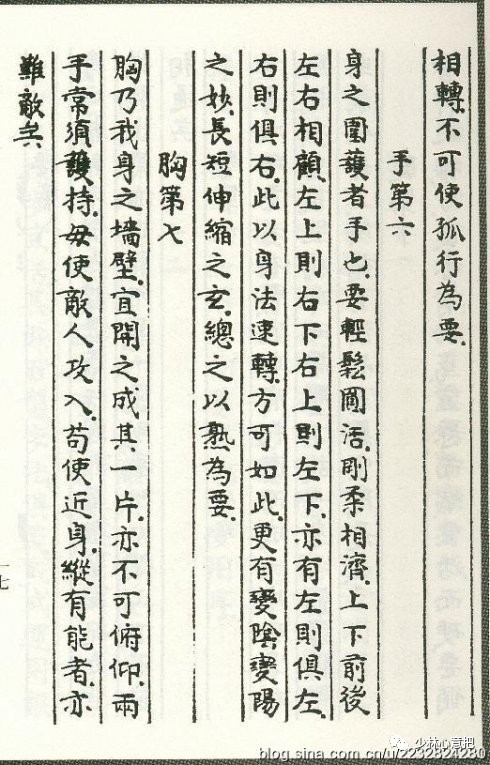 相轉.不可使孤行為要.
手第六
身之圍護者手也.要輕鬆圓活.剛柔相濟.上下前後
左右相顧.左上則右下右上則左下.亦有左則俱左.
右則俱右.此以身法速轉.方可如此.更有變陰變陽
之妙.長短伸縮之玄.總之以熟為要.
胸第七
胸乃我身之墻壁.宜開之成其一片.亦不可俯仰.兩
手常須護持.毋使敵人攻入.苟使近身.縱有能者.亦
難敵矣
一七
少林心意把
blog.sina.com.cn/u/2232824280